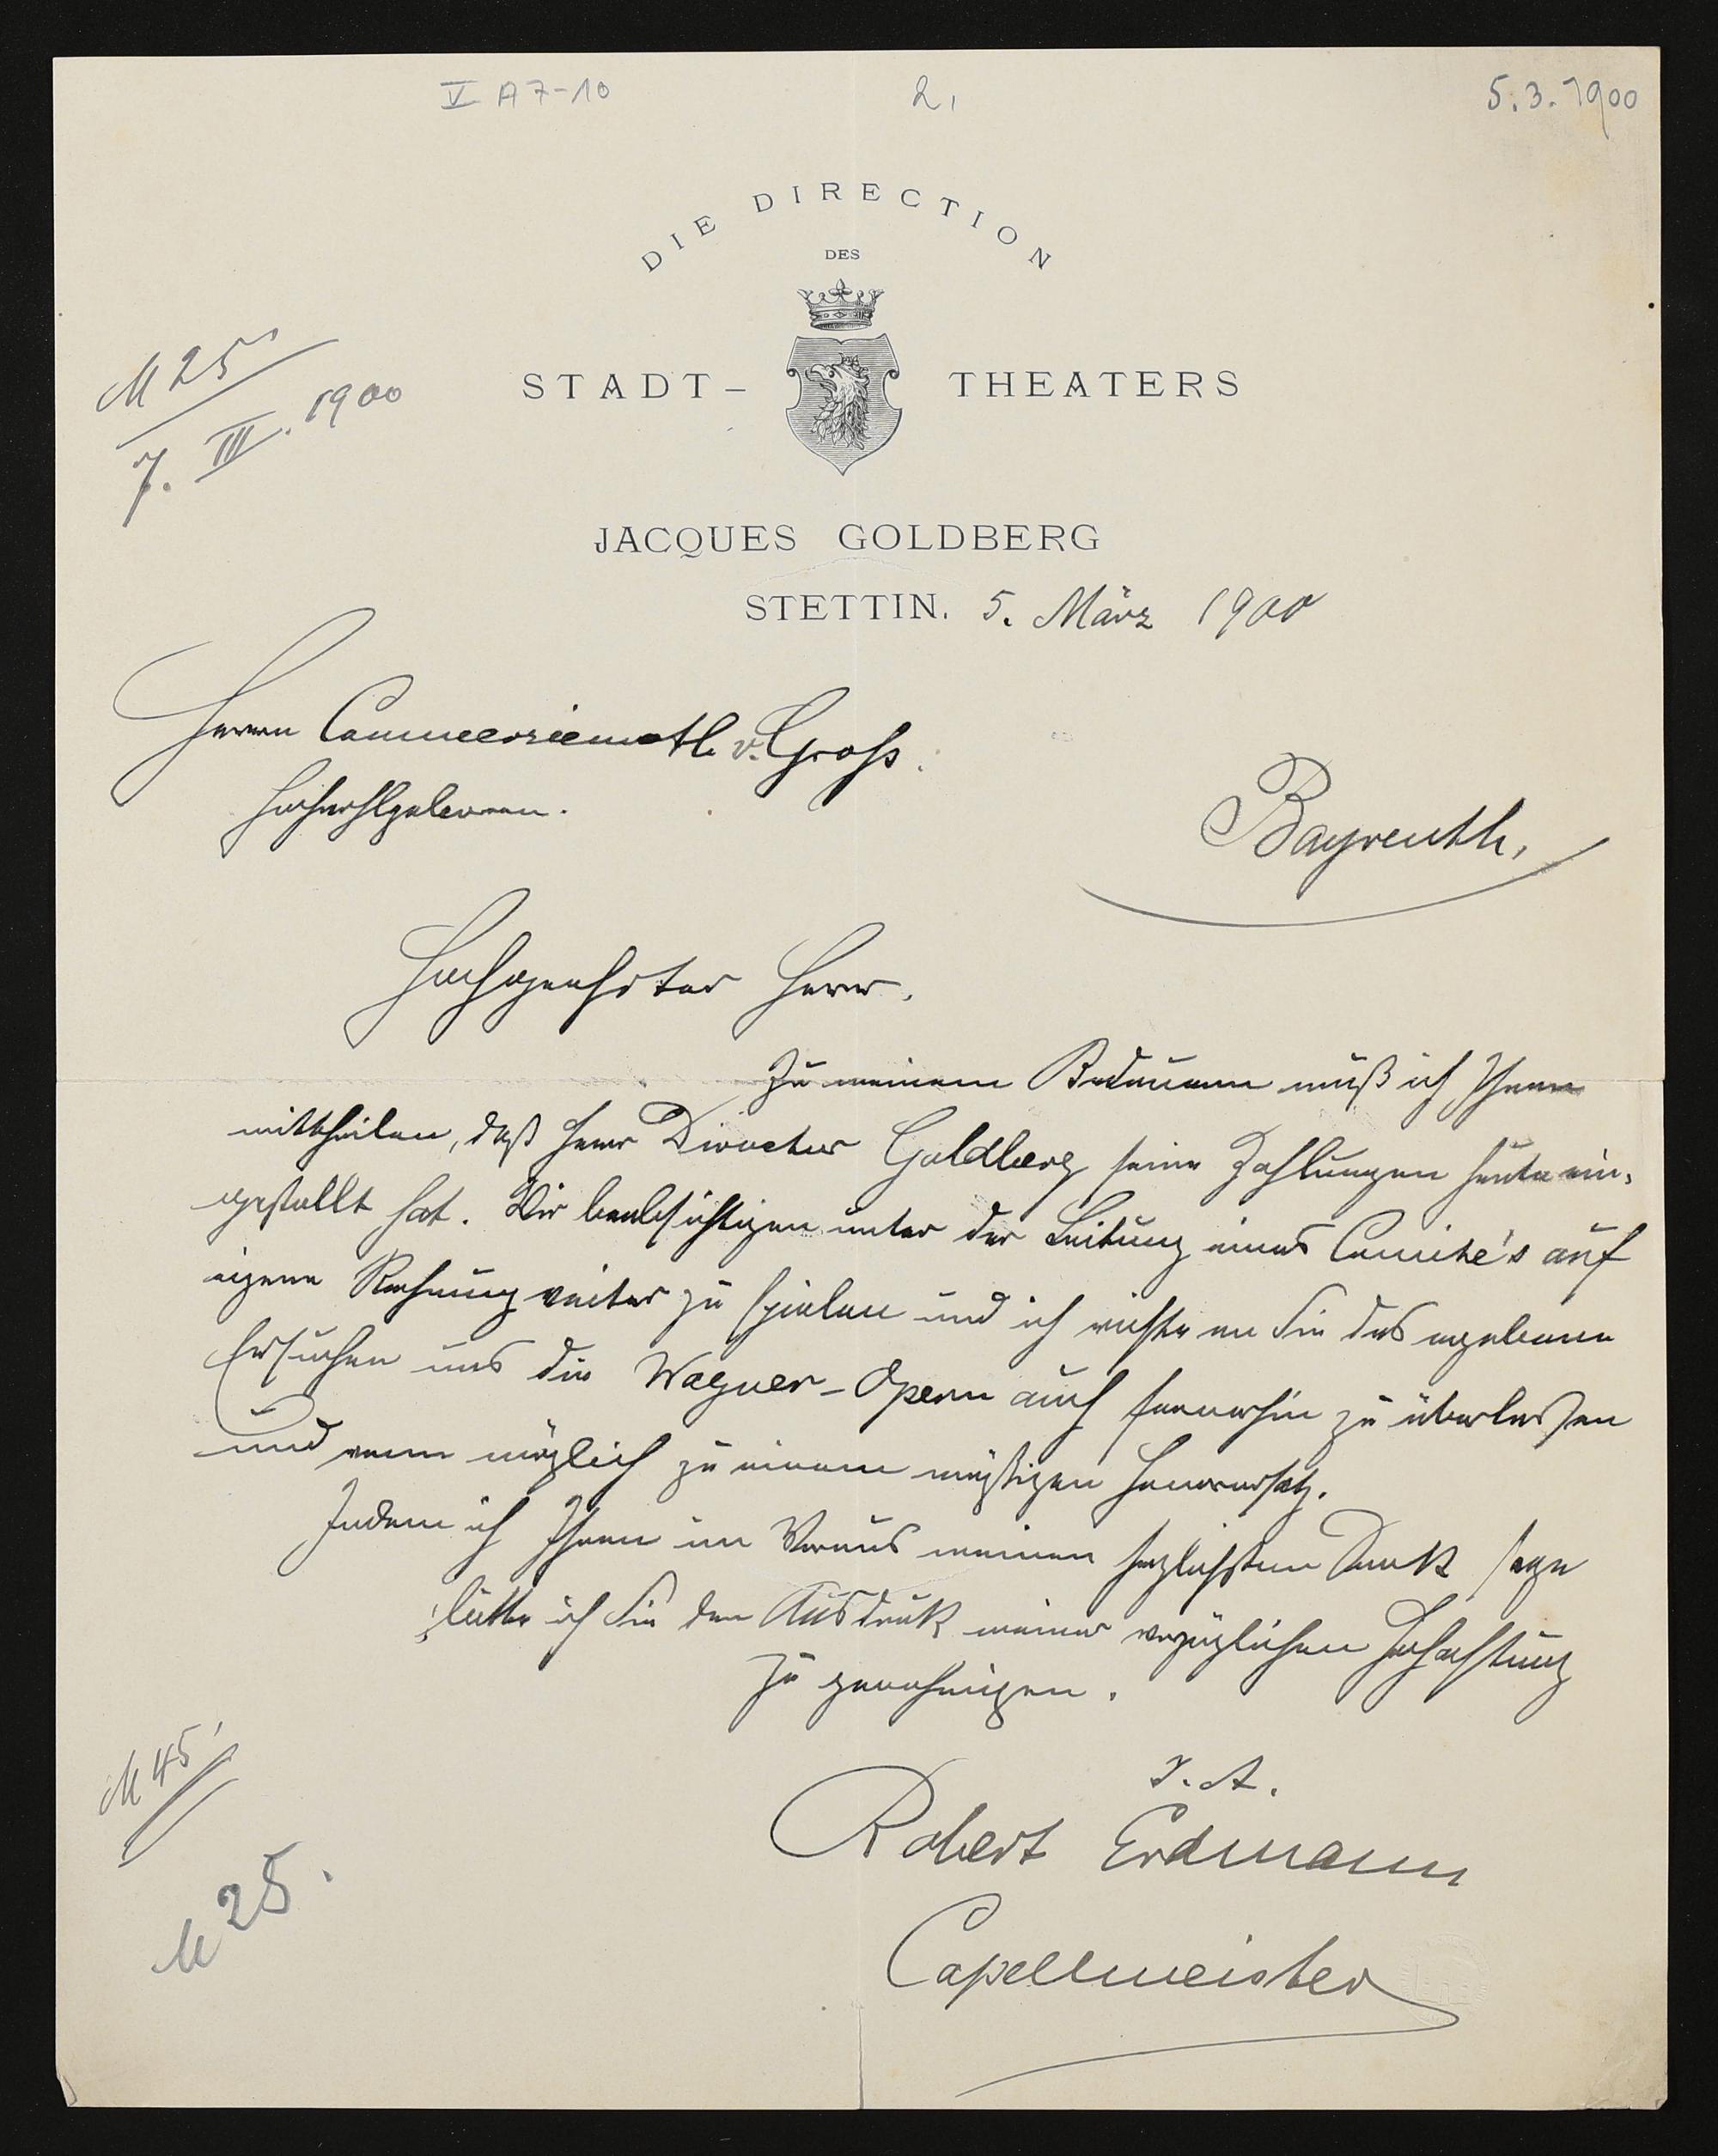 V A 7-10 2, 5.3.1900
DIE DIRECTION
DES
M 25
7. III. 1900
STADT- THEATERS
JACQUES GOLDBERG
STETTIN. 5. März 1900
Herrn Commerzienrath v. Groß.
Hochwohlgeboren.
Bayreuth,
Hochgeehrter Herr.
Zu meinem Bedauern muß ich Ihnen
mittheilen, daß Herr Director Goldberg seine Zahlungen heute ein-
gestellt hat. Wir beabsichtigen unter der Leitung eines Comité's auf
eigene Rechnung weiter zu spielen und ich richte an Sie das ergebene
Ersuchen uns die Wagner-Opern auch fernerhin zu überlassen
und wenn möglich zu einem mäßigen
Indem ich Ihnen im Voraus meinen herzlichsten Dank sage
bitte ich Sie den Ausdruck meiner vorzüglichen Hochachtung
zu genehmigen.
I. A.
M 45
Robert Erdmann
M 25.
Capellmeister